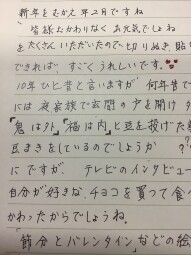 新年をむかえ早2月ですね
皆様おかわりなく お元気でしょね
をたくさんいただいたので切りぬき、貼
できれば、すごくうれしいです。
10年ひと昔と言いますが 何年昔で
には 夜家族で玄関の戸を開け
「鬼は外」「福は内」と豆を投げた
豆まきをしているのでしょうか ?
にですが、テレビのインタビュ
自分が好きなチョコを買って食べ
かわったからでしょうね。
「節分とバレンタイン」などの絵